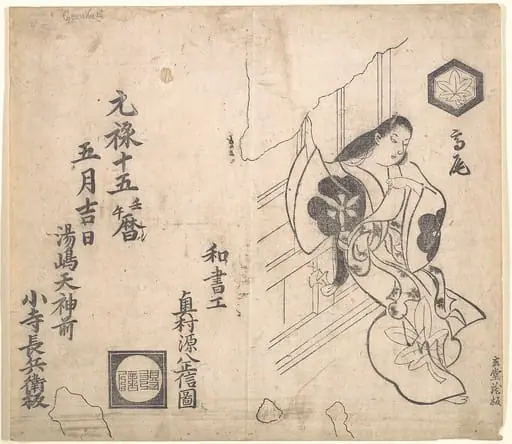 高尾
和書工
奥村源八正信圖
元禄十五壬午暦
五月吉日
湯嶋天神前
小寺長兵衛板